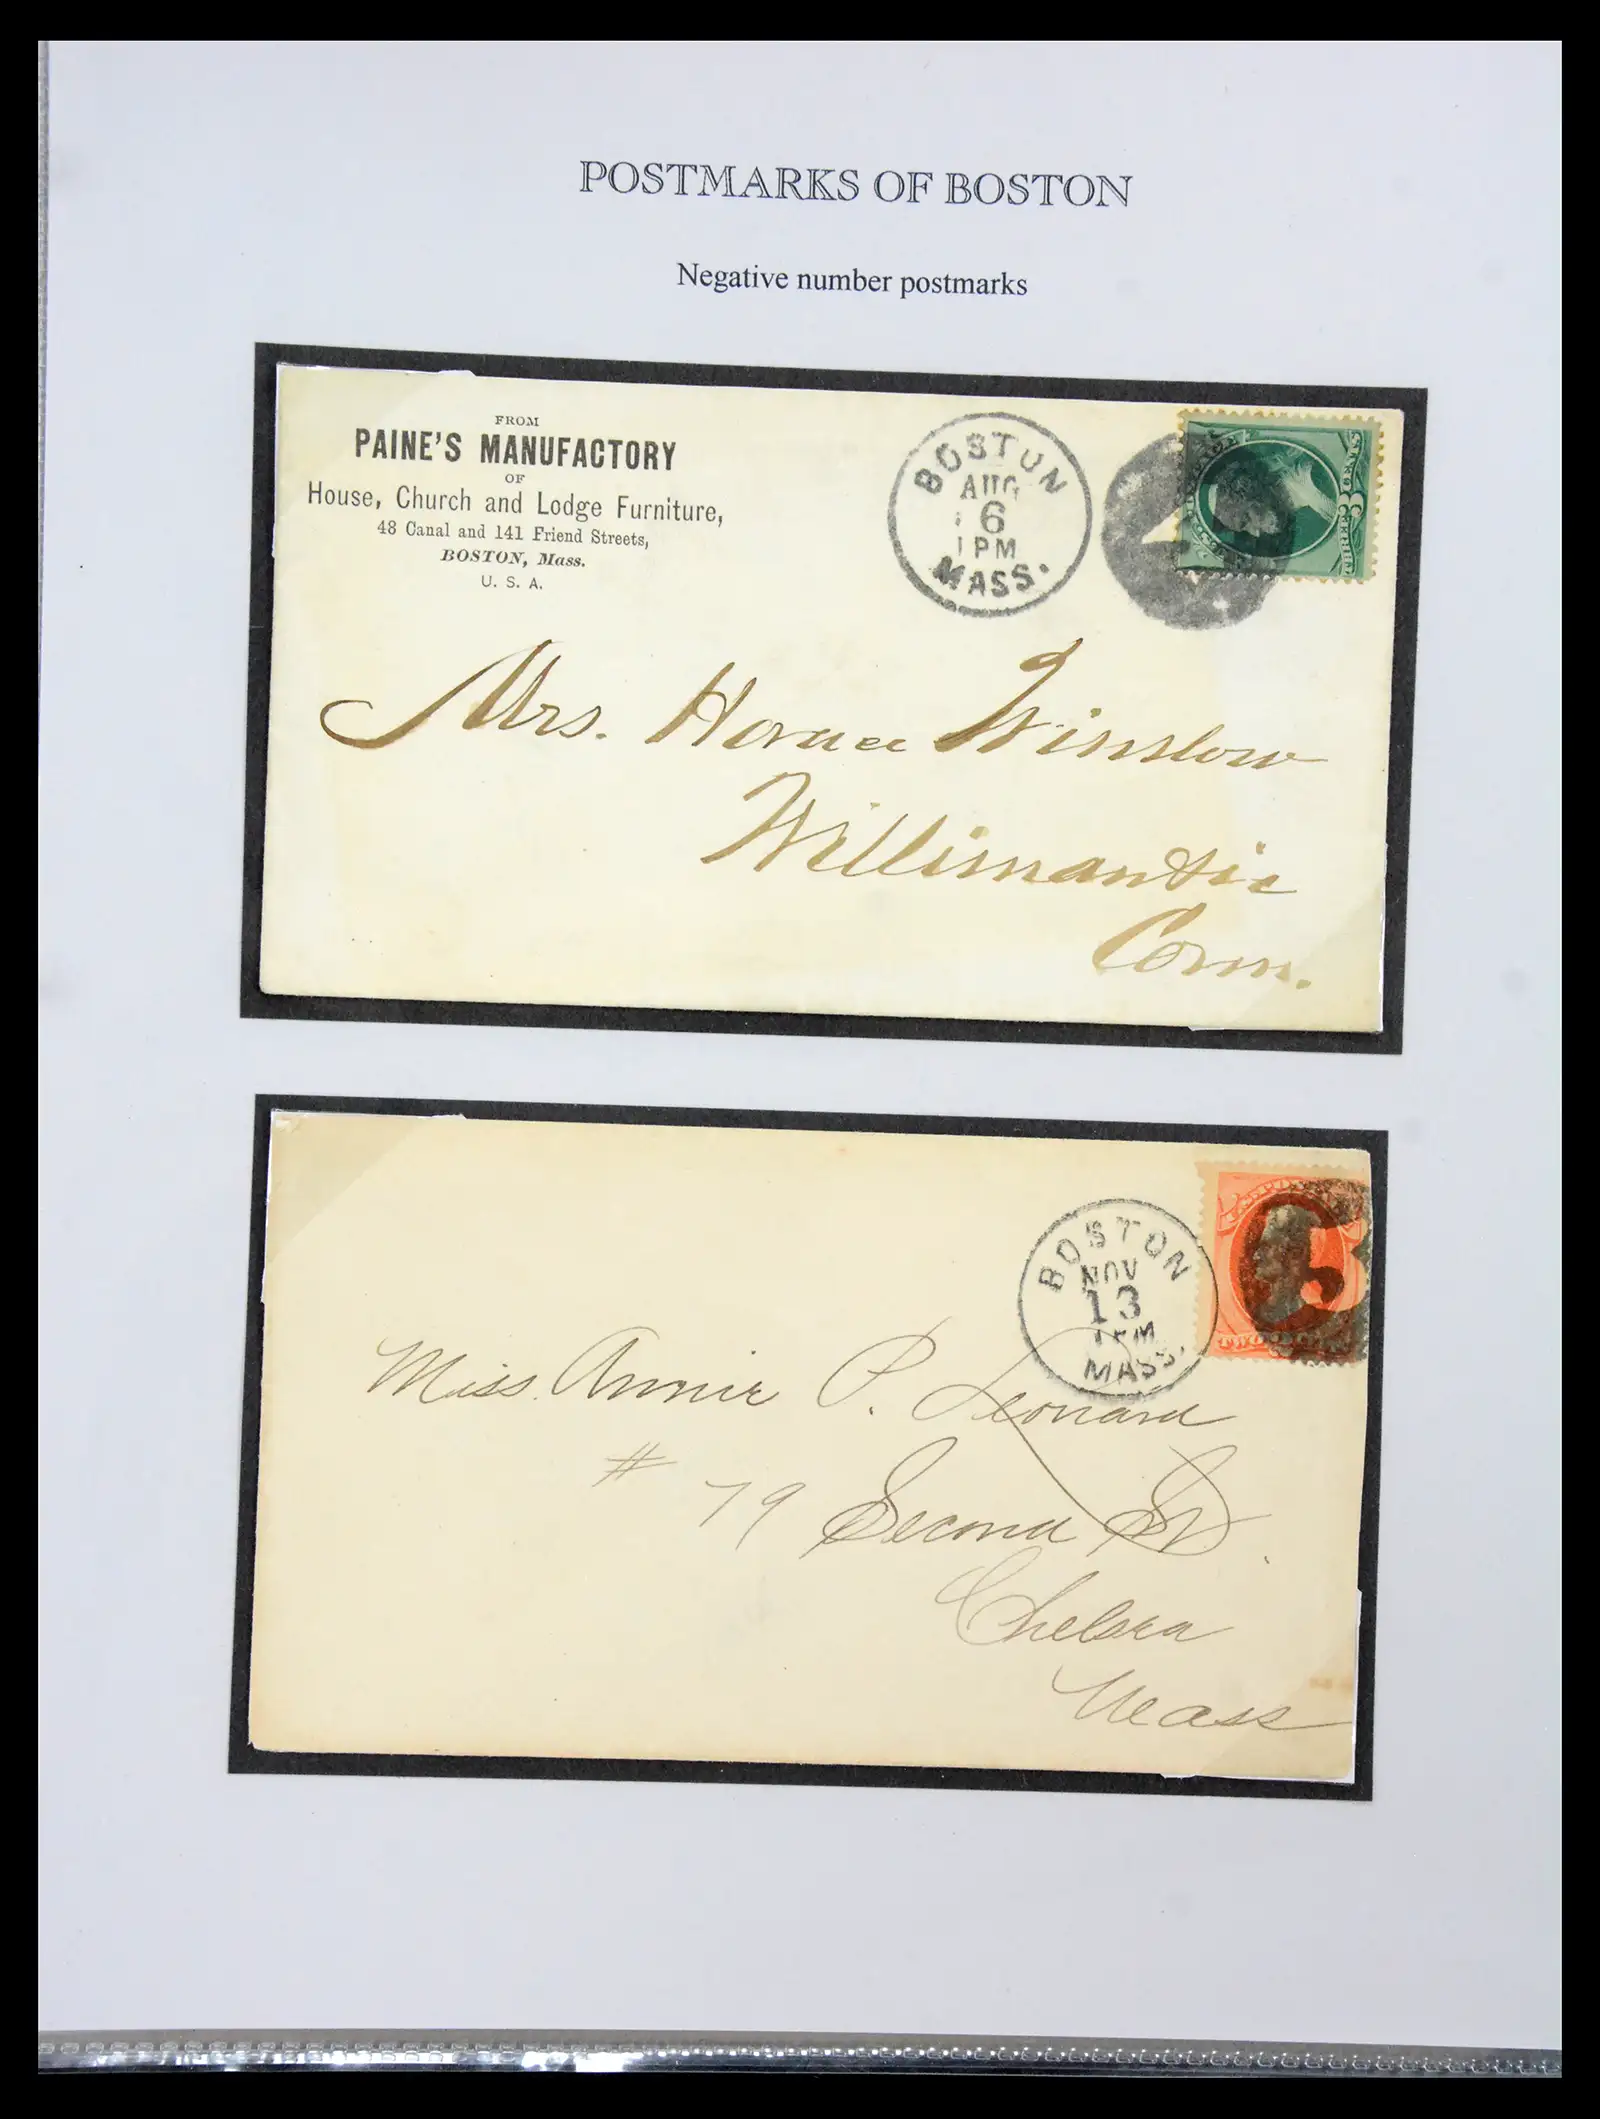 POSTMARKS OF BOSTON
Negative number postmarks
FROM
PAINE'S MANUFACTORY
OF
House, Church and Lodge Furniture,
48 Canal and 141 Friend Streets,
BOSTON, Mass.
U. S. A.
BOSTON
AUG
6
1 PM
MASS.
Mrs. Horace Winslow
Willimantic
Conn.
BOSTON
NOV
13
MASS.
TWO
Miss. Annie P. Leonard
# 79 Second St.
Chelsea
Mass